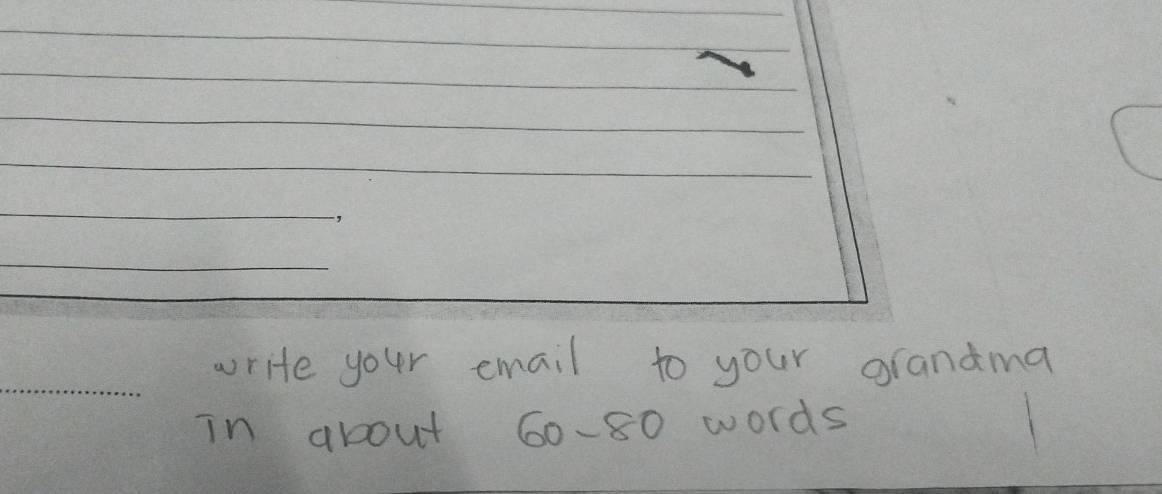 write your email to your grandma
in about 60-80 words